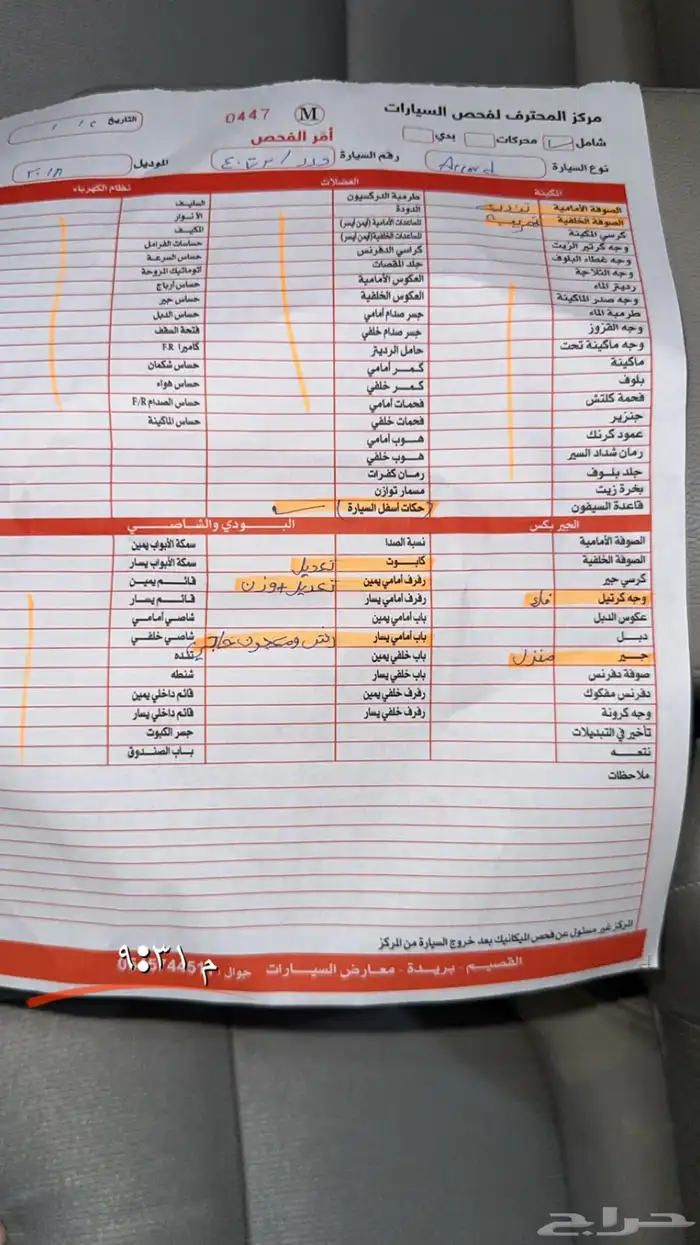 مركز المحترف لفحص السيارات
M
0447
التاريخ
شامل
محركات
بدي
أمر الفحص
نوع السيارة Accord
رقم السيارة
الموديل ٢٠١٨
المكينة
الصوفة الأمامية
الصوفة الخلفية
كرسي المكينة
وجه كرتير الزيت
وجه غطاء البلوف
وجه الثلاجة
رديتر الماء
وجه صدر الماكينة
طرمبة الماء
وجه القزوز
وجه ماكينة تحت
ماكينة
بلوف
فحمة كلتش
جنزير
عمود كرنك
رمان شداد السير
جلد بلوف
بخرة زيت
قاعدة السيفون
العضلات
طرمبة الدركسيون
الدودة
المساعدات الأمامية (أيمن أيسر)
المساعدات الخلفية (أيمن أيسر)
كراسي الدفرنس
جلد المقصات
العكوس الأمامية
العكوس الخلفية
جسر صدام أمامي
جسر صدام خلفي
حامل الرديتر
كمر أمامي
كمر خلفي
فحمات أمامي
فحمات خلفي
هوب أمامي
هوب خلفي
رمان كفرات
مسمار توازن
(حكات أسفل السيارة)
نظام الكهرباء
السايف
الأنوار
المكيف
حساسات الفرامل
حساس السرعة
أتوماتيك المروحة
حساس أرباج
حساس جير
حساس الدبل
فتحة السقف
كاميرا F.R
حساس شكمان
حساس هواء
حساس الصدام F/R
حساس الماكينة
الجير بكس
الصوفة الأمامية
الصوفة الخلفية
كرسي جير
وجه كرتيل فك
عكوس الدبل
دبل
جير منزل
صوفة دفرنس
دفرنس مفكوك
وجه كرونة
تأخير في التبديلات
نتعه
البودي والشاصي
نسبة الصدا
كابوت تعديل
رفرف أمامي يمين تعديل + وزن
رفرف أمامي يسار
باب أمامي يمين
باب أمامي يسار رش ومعجون
باب خلفي يمين
باب خلفي يسار
رفرف خلفي يمين
رفرف خلفي يسار
سمكة الأبواب يمين
سمكة الأبواب يسار
قائم يمين
قائم يسار
شاصي أمامي
شاصي خلفي
تكده
شنطه
قائم داخلي يمين
قائم داخلي يسار
جسر الكبوت
باب الصندوق
ملاحظات
المركز غير مسئول عن فحص الميكانيك بعد خروج السيارة من المركز
القصيم - بريدة - معارض السيارات جوال
٩:٣١ م
حراج